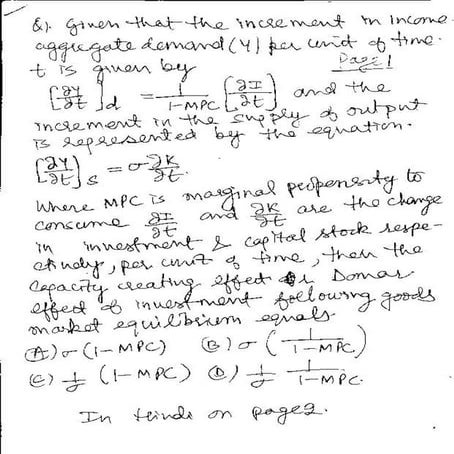 Q). Given that the increment in income
aggregate demand (Y) per unit of time.
Page 1
t is given by
[∂Y/∂t]d = 1/1-MPC [∂I/∂t] and the
increment in the supply of output
is represented by the equation.
[∂Y/∂t]s = σ ∂K/∂t.
Where MPC is marginal propensity to
consume ∂I/∂t and ∂K/∂t are the change
in investment & capital stock respe-
ctively, per unit of time, then the
capacity creating effect or Domar
effect of investment following goods
market equilibrium equals.
(A) σ (1-MPC) (B) σ (1/1-MPC)
(C) 1/σ (1-MPC) (D) 1/σ 1/1-MPC.
In Hindi on page 2.